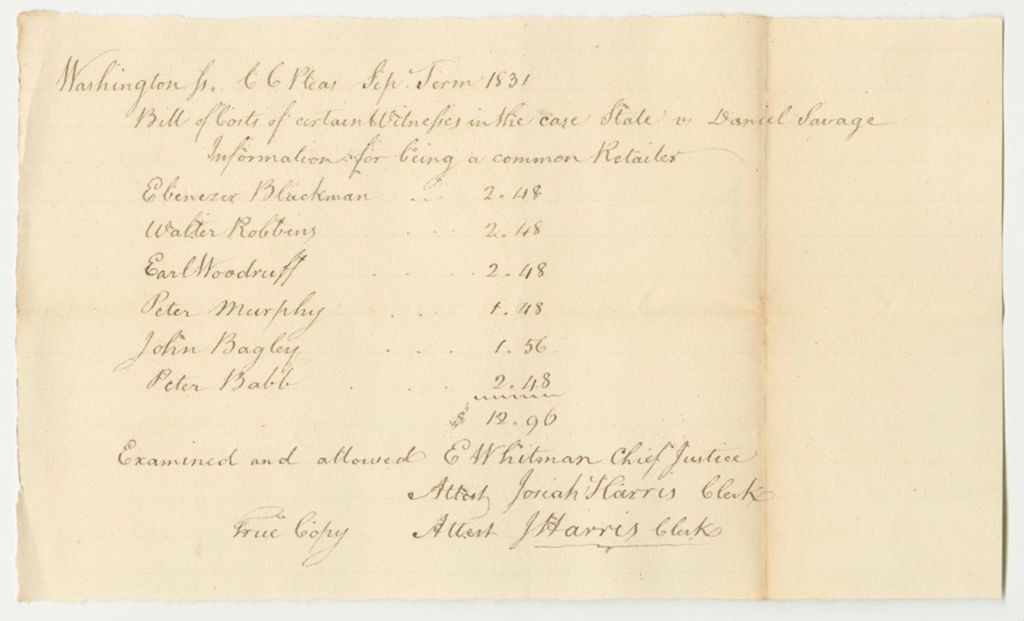 Washington ss. C C Pleas Sep. Term 1831
Bill of Costs of certain Witnesses in the case State vs Daniel Savage
Information for being a common Retailer
Ebenezer Blackman .. 2.48
Walter Robbins .... 2.48
Earl Woodruff .... 2.48
Peter Murphy ... 1.48
John Bagley .... 1.56
Peter Babb ... 2.48
$ 12.96
Examined and allowed E Whitman Chief Justice
Attest Josiah Harris Clerk
True Copy Attest J Harris Clerk